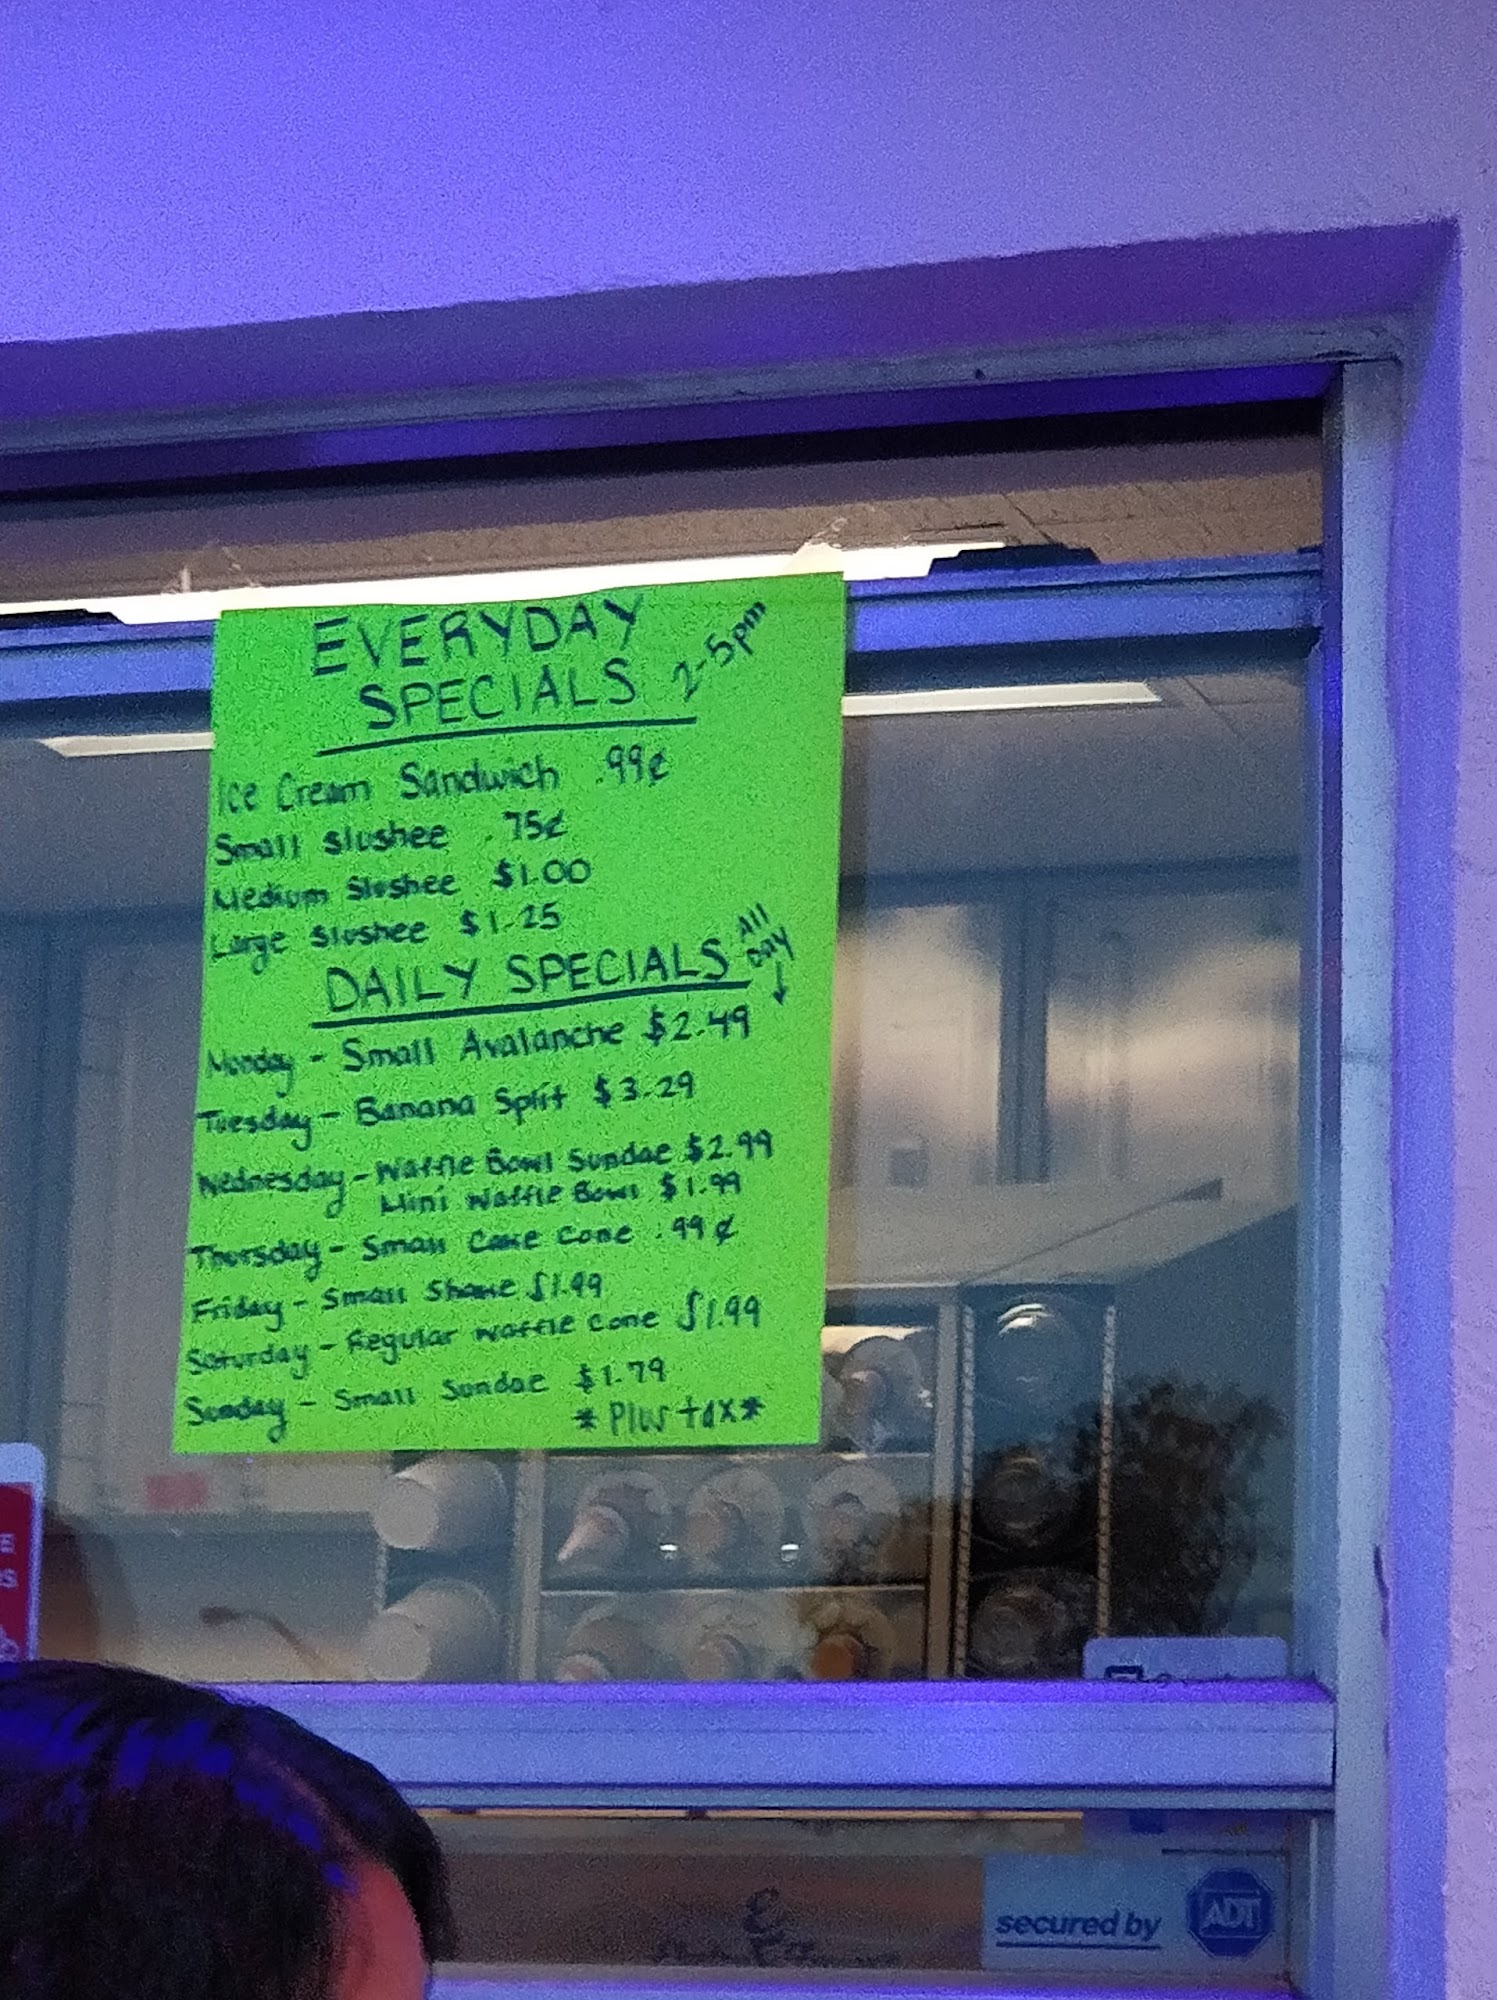 EVERYDAY
SPECIALS 2-5pm
Ice Cream Sandwich .99¢
Small Slushee .75¢
Medium Slushee $1.00
Large Slushee $1.25
DAILY SPECIALS All DAY
Monday - Small Avalanche $2.49
Tuesday - Banana Split $3.29
Wednesday - Waffle Bowl Sundae $2.99
Mini Waffle Bowl $1.99
Thursday - Small Cake Cone .99¢
Friday - Small Shake $1.99
Saturday - Regular Waffle Cone $1.99
Sunday - Small Sundae $1.79
*Plus tax*
secured by ADT